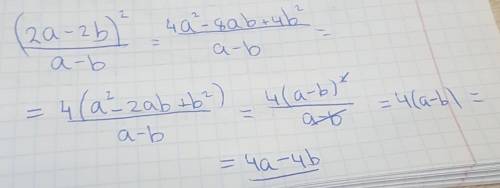 (2a-2b)²/(a-b) = (4a²-8ab+4b²)/(a-b) =
= 4(a²-2ab+b²)/(a-b) = 4(a-b)²/(a-b) = 4(a-b) =
= 4a-4b